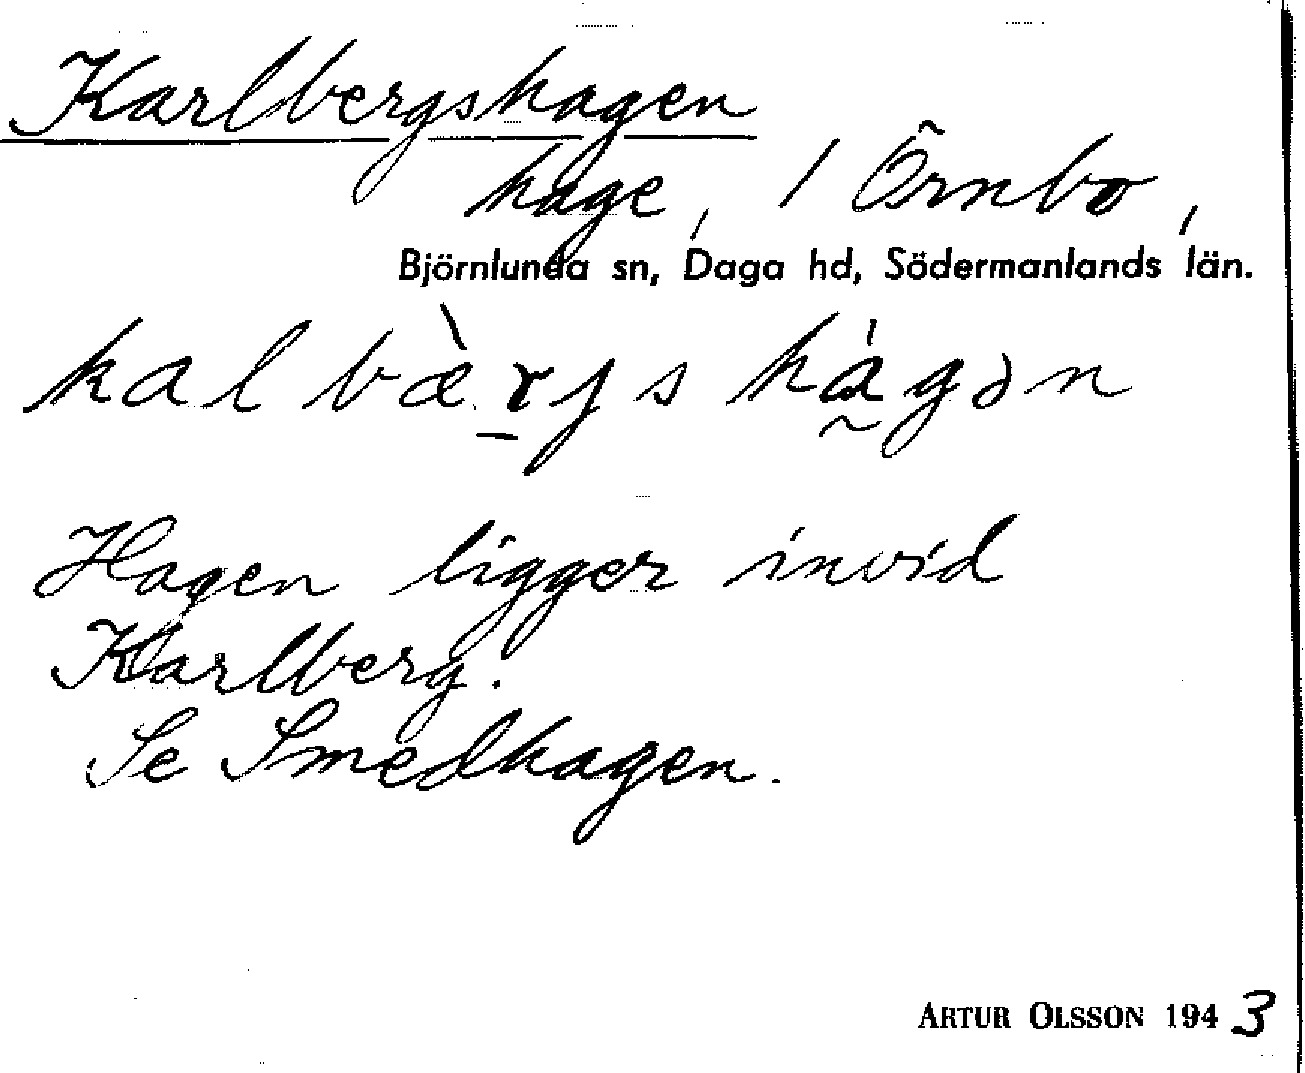 Karlbergshagen
hage, / Örnbo,
Björnlunda sn, Daga hd, Södermanlands län.
kalbæ̀rjshágən
Hagen ligger invid
Karlberg.
Se Smedhagen.
ARTUR OLSSON 1943